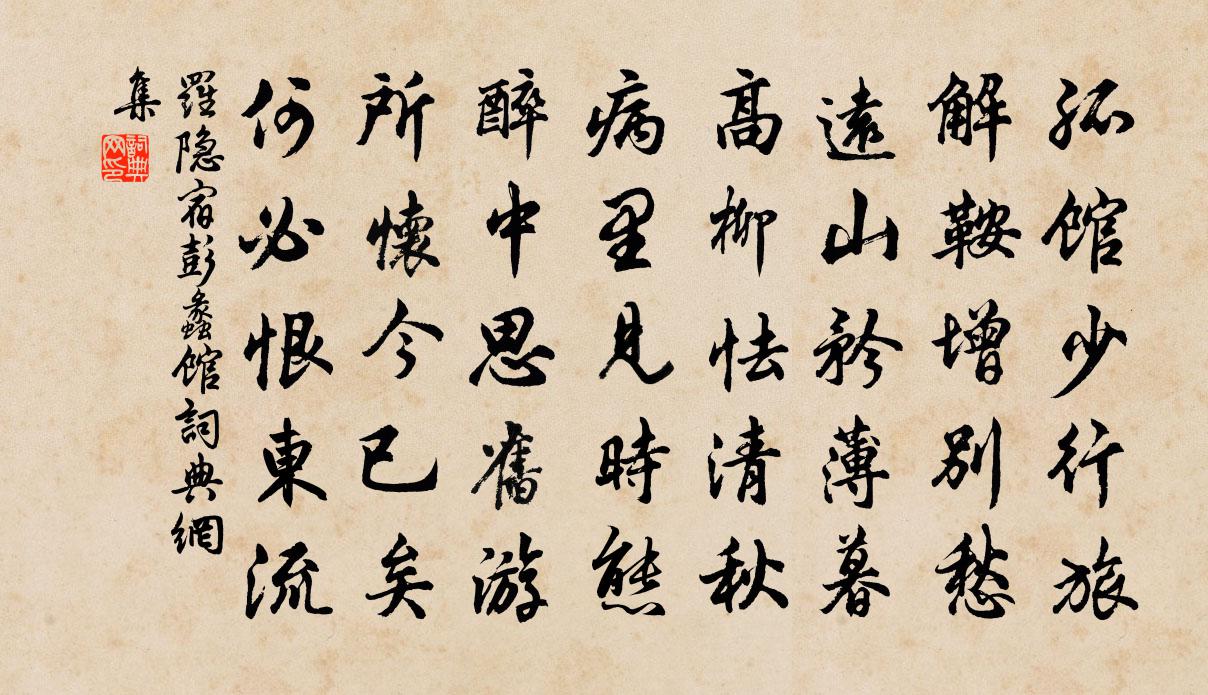 孤館少行旅
解鞍增別愁
遠山矜薄暮
高柳怯清秋
病里見時態
醉中思舊游
所懷今已矣
何必恨東流
羅隐宿彭蠡館詞典網
集
詞典网印